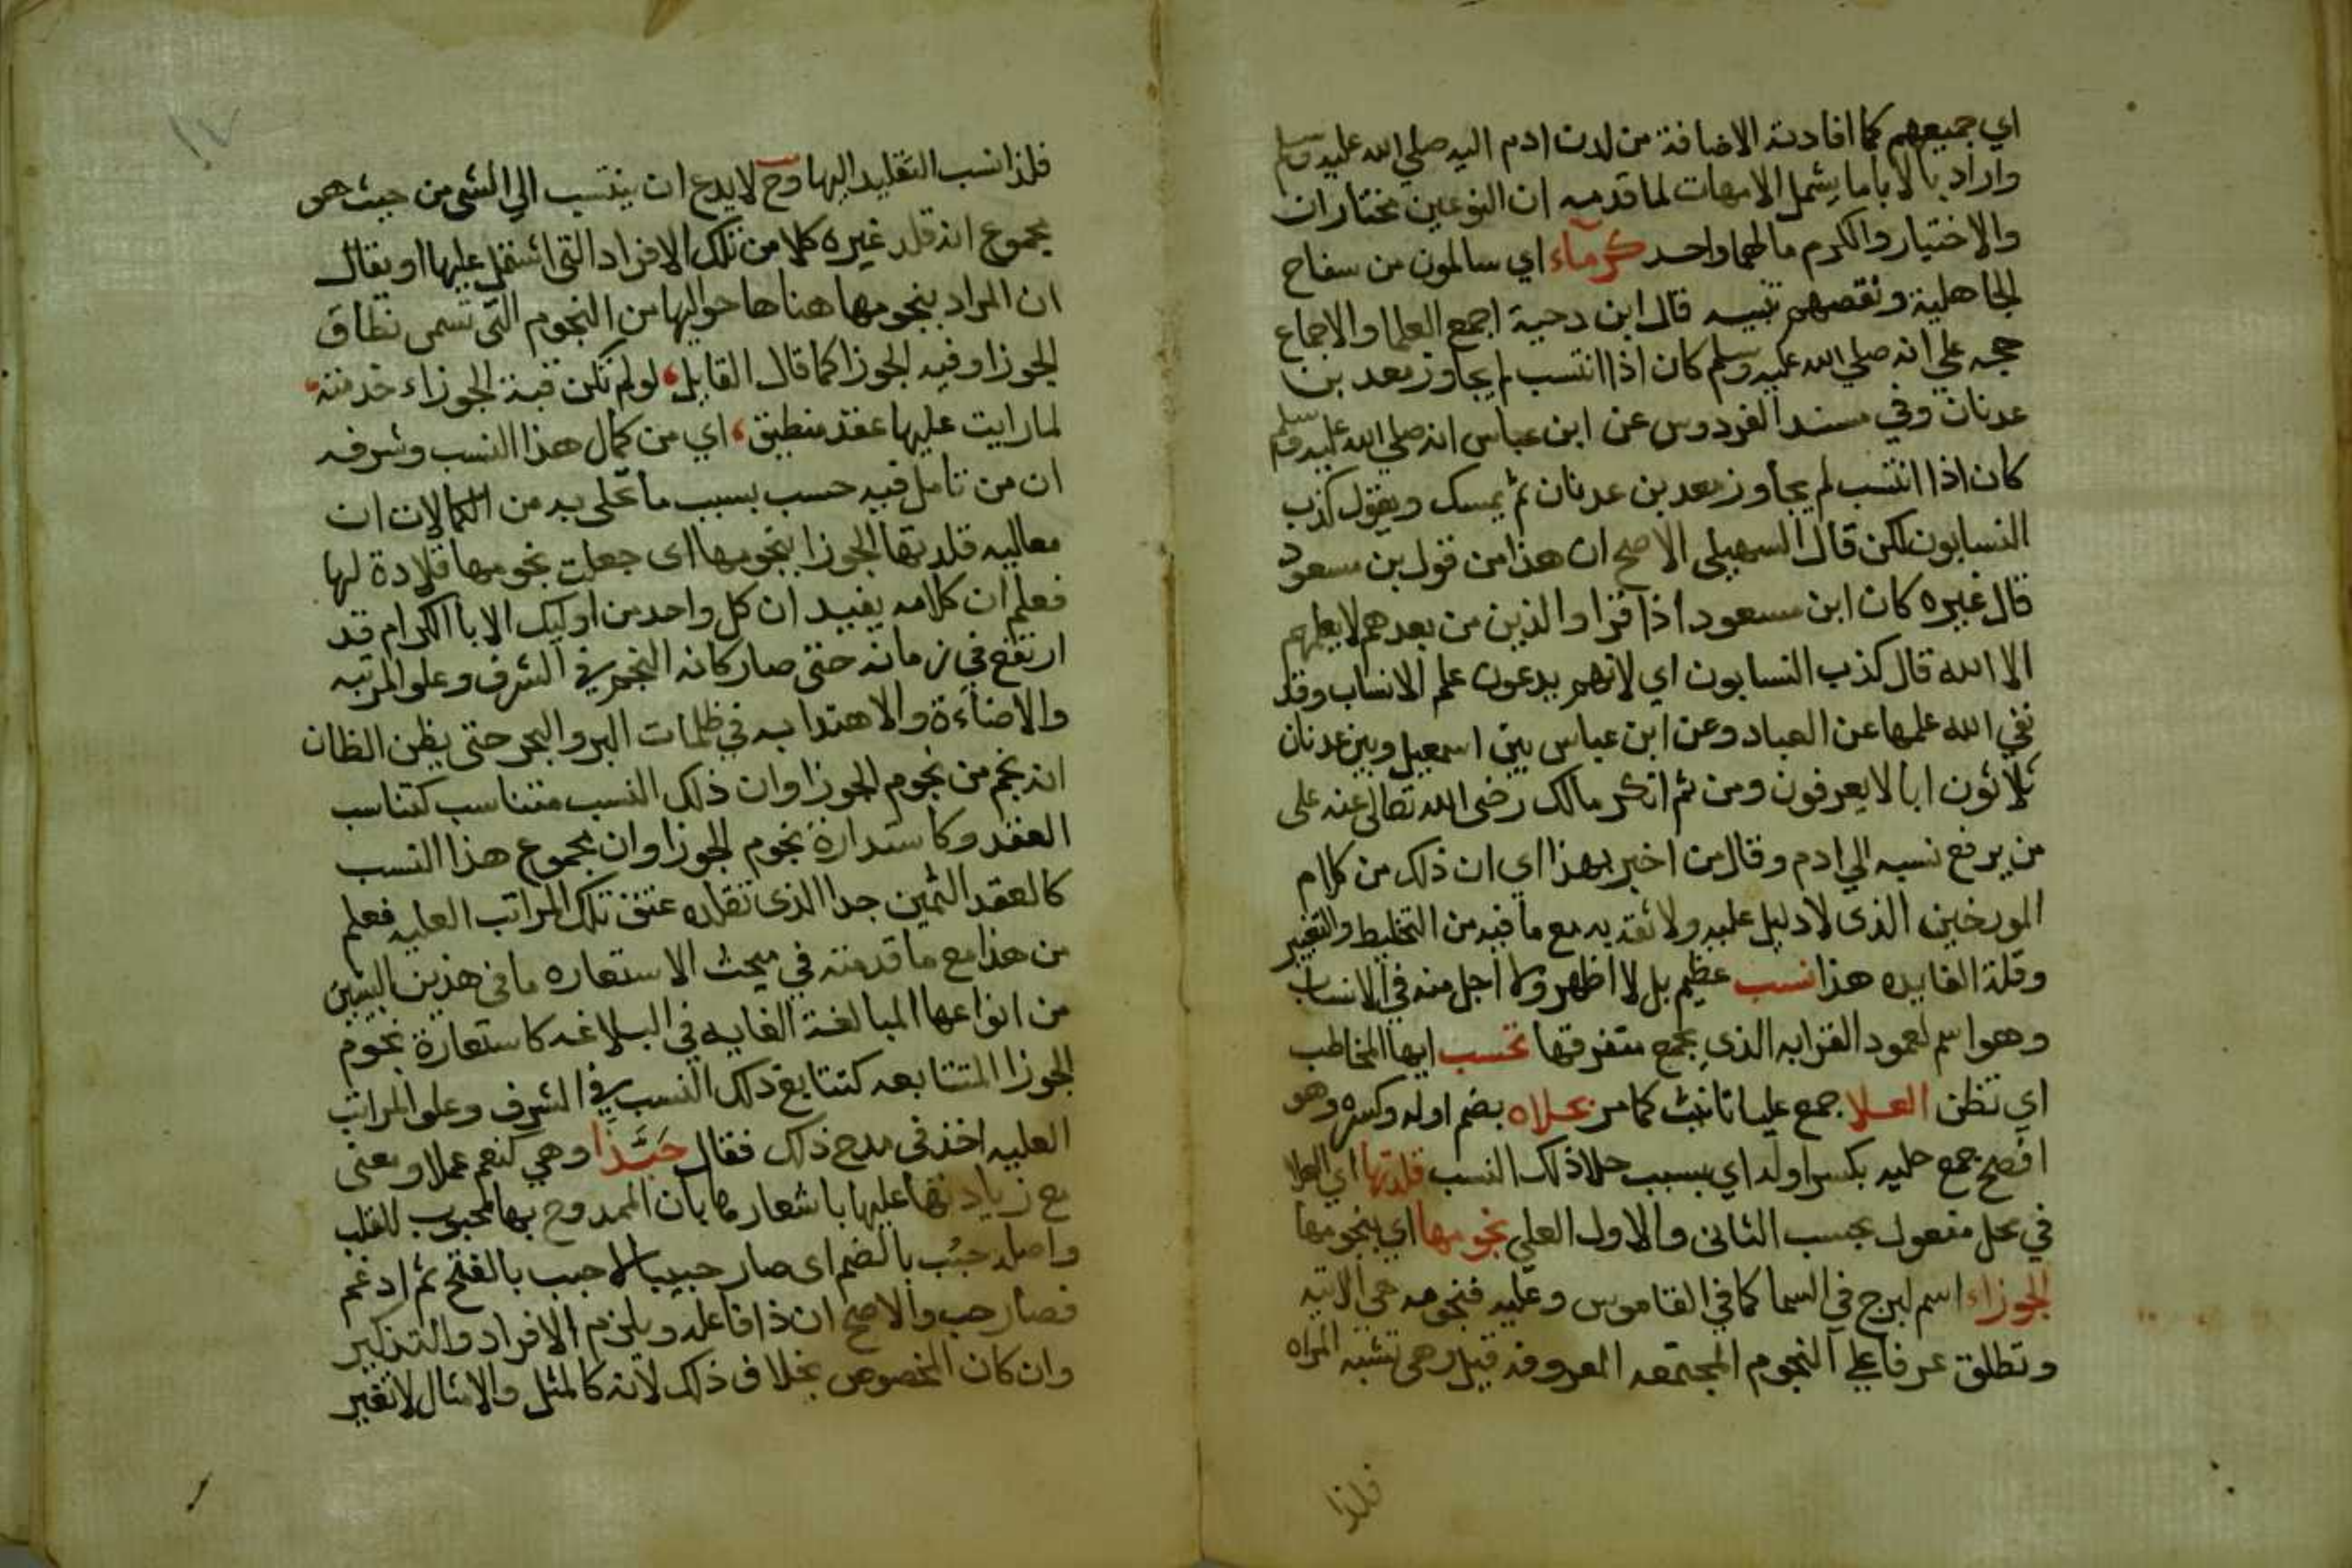 اي جميعهم كما افادته الاضافة من لدن ادم اليه صلي الله عليه وسلم
واراد بالابا ما يشمل الامهات لما قدمه ان النوعين مختاران
والاختيار والكرم مالهما واحد كرماء اي سالمون من سفاح
الجاهلية ونقصهم تنبيه قال ابن دحية اجمع العلما والاجماع
حجه علي انه صلي الله عليه وسلم كان اذا انتسب لم يجاوز معد بن
عدنان وفي مسند الفردوس عن ابن عباس انه صلي الله عليه وسلم
كان اذا انتسب لم يجاوز معد بن عدنان ثم يمسك ويقول كذب
النسابون لكن قال السهيلي الاصح ان هذا من قول بن مسعود
قال غيره كان ابن مسعود اذا قرا والذين من بعدهم لا يعلمهم
الا الله قال كذب النسابون اي لانهم يدعون علم الانساب وقد
نفي الله علمها عن العباد وعن ابن عباس بين اسمعيل وبين عدنان
ثلاثون ابا لا يعرفون ومن ثم انكر مالك رضى الله تعالى عنه على
من يرفع نسبه الي ادم وقال من اخبر بهذا اي ان ذلك من كلام
المورخين الذى لا دليل عليه ولا ثقة به مع ما فيه من التخليط والتغيير
وقلة الفايده هذا نسب عظيم بل لا اظهر ولا اجل منه في الانساب
وهو اسم لعمود القرابه الذي يجمع متفرقها تحسب ايها المخاطب
اي تظن العلا جمع عليا تانيث كما مر بحلاه بضم اوله وكسره وهو
افصح جمع حليه بكسر اوله اي بسبب حلا ذلك النسب قلدتها اي العلا
في محل مفعول تحسب الثانى والاول العلي نجومها اي بنجومها
الجوزاء اسم لبرج في السما كما في القاموس وعليه فنجومه هي الاتيه
وتطلق عرفا علي النجوم المجتمعه المعروفه قيل وهى تشبه المراه
فلذا
١٧
فلذا نسب التقليد اليها وح لا يدع ان ينتسب الي الشى من حيث هو
مجموع انه قلد غيره كلا من تلك الافراد التى اشتمل عليها او يقال
ان المراد بنجومها هنا ها حواليها من النجوم التى تسمى نطاق
الجوزا وفيه الجوزا كما قال القايل، لو لم تكن فية الجوزاء خدمته،
لما رايت عليها عقد منطبق، اي من كمال هذا النسب وشرفه
ان من تامل فيه حسب بسبب ما تحلى به من الكمالات ان
معاليه قلدتها الجوزا بنجومها اى جعلت نجومها قلادة لها
فعلم ان كلامه يفيد ان كل واحد من اوليك الابا الكرام قد
ارتفع في زمانه حتى صار كانه النجم في الشرف وعلو المرتبه
والاضاءة والاهتدا به في ظلمات البر والبحر حتى يظن الظان
انه نجم من نجوم الجوزا وان ذلك النسب متناسب كتناسب
العقد وكاستدارة نجوم الجوزا وان مجموع هذا النسب
كالعقد الثمين جدا الذى تقلده عنق تلك المراتب العليه فعلم
من هذا مع ما قدمته في مبحث الاستعاره ما فى هذين البيتين
من انواعها المبالغة الغايه في البلاغه كاستعارة نجوم
الجوزا المتتابعه كتتابع ذلك النسب في الشرف وعلو المراتب
العليه اخذ فى مدح ذلك فقال حَبَّذَا وهي كنعم عملا ومعنى
مع زيادتها عليها باشعارها بان الممدوح بها محبوب للقلب
واصله حبُب بالضم اى صار حبيبا لا حبب بالفتح ثم ادغم
فصار حب والاصح ان ذا فاعله ويلزم الافراد والتذكير
وان كان المخصوص بخلاف ذلك لانه كالمثل والامثال لا تغير